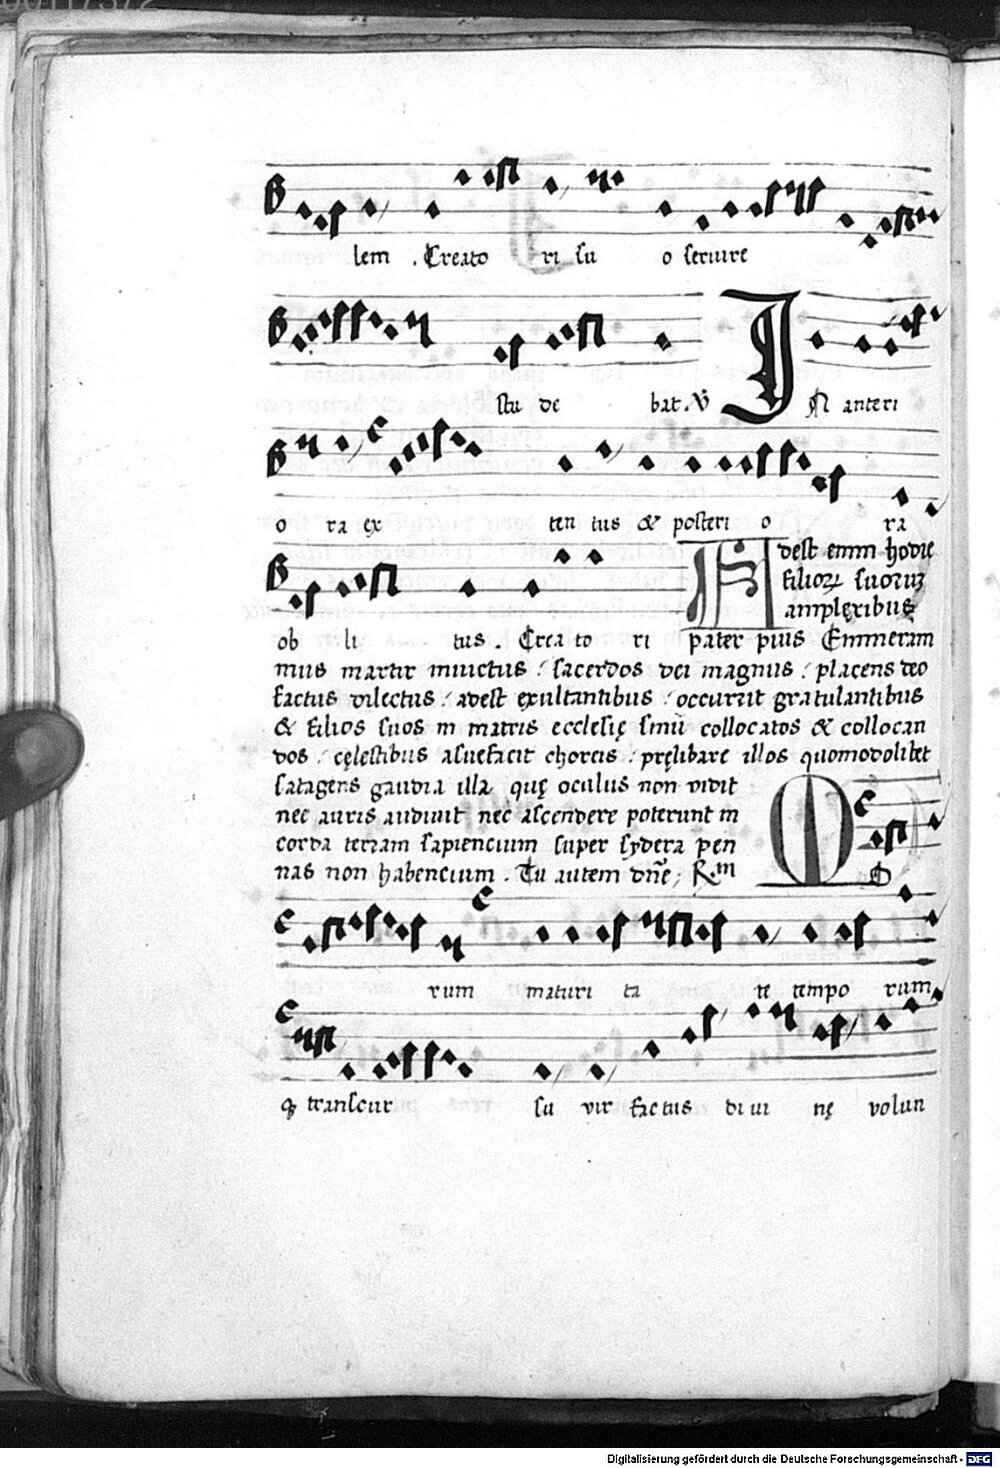 lem . Creato ri su o seruire
stu de bat . V̓ IN anteri
o ra ex ten tus & posteri o ra
ob li tus . Crea to ri
Adest enim hodie
filioꝝ suorum
amplexibus
pater pius Emmeram
mus martir inuictus : sacerdos dei magnus : placens deo
factus dilectus : adest exultantibus : occurrit gratulantibus
& filios suos in matris ecclesię sinū collocatos & collocan
dos : cęlestibus asuefacit choreis : pręlibare illos quomodolibet
satagens gaudia illa quę oculus non vidit
nec auris audiuit nec ascendere poterunt in
corda terram sapiencium super sydera pen
nas non habencium . Tu autem dn̄e ; R̄m
MO
rum maturi ta te tempo rum
ꝙ transcur su vir factus diui nę volun
Digitalisierung gefördert durch die Deutsche Forschungsgemeinschaft - DFG